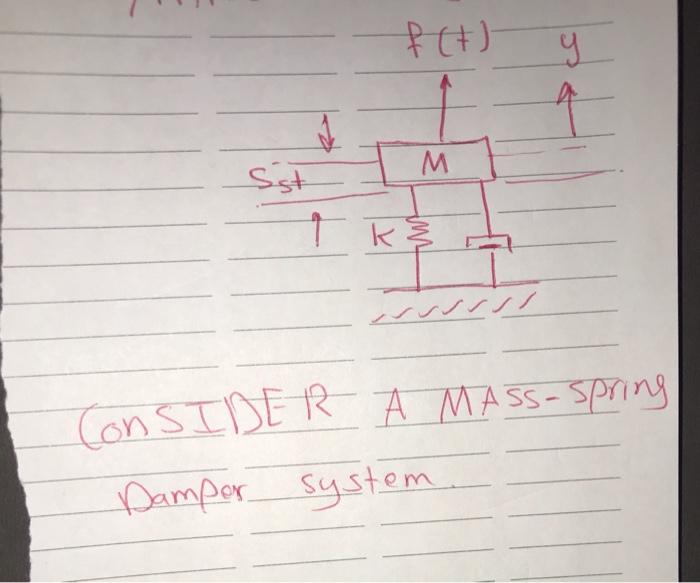 f(t) y
M
Sst
K
CONSIDER A MASS-spring
Damper system.